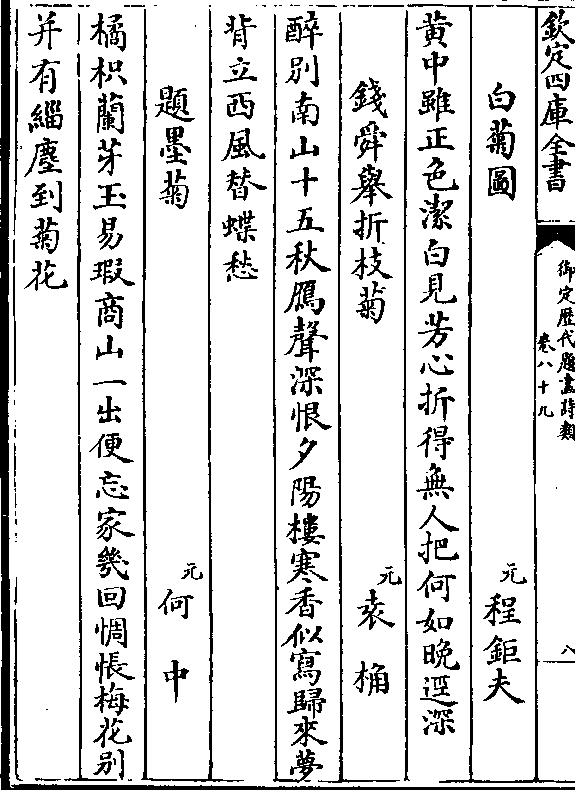 欽定四庫全書
御定歴代題畫詩類
卷八十九
八
白菊圖
元
程鉅夫
黄中雖正色潔白見芳心折得無人把何如晚逕深
錢舜舉折枝菊
元
袁桷
醉别南山十五秋鴈聲深恨夕陽樓寒香似寫歸來夢
背立西風替蝶愁
題墨菊
元
何中
橘枳蘭芽玉易瑕商山一出便忘家幾回惆悵梅花别
并有緇塵到菊花